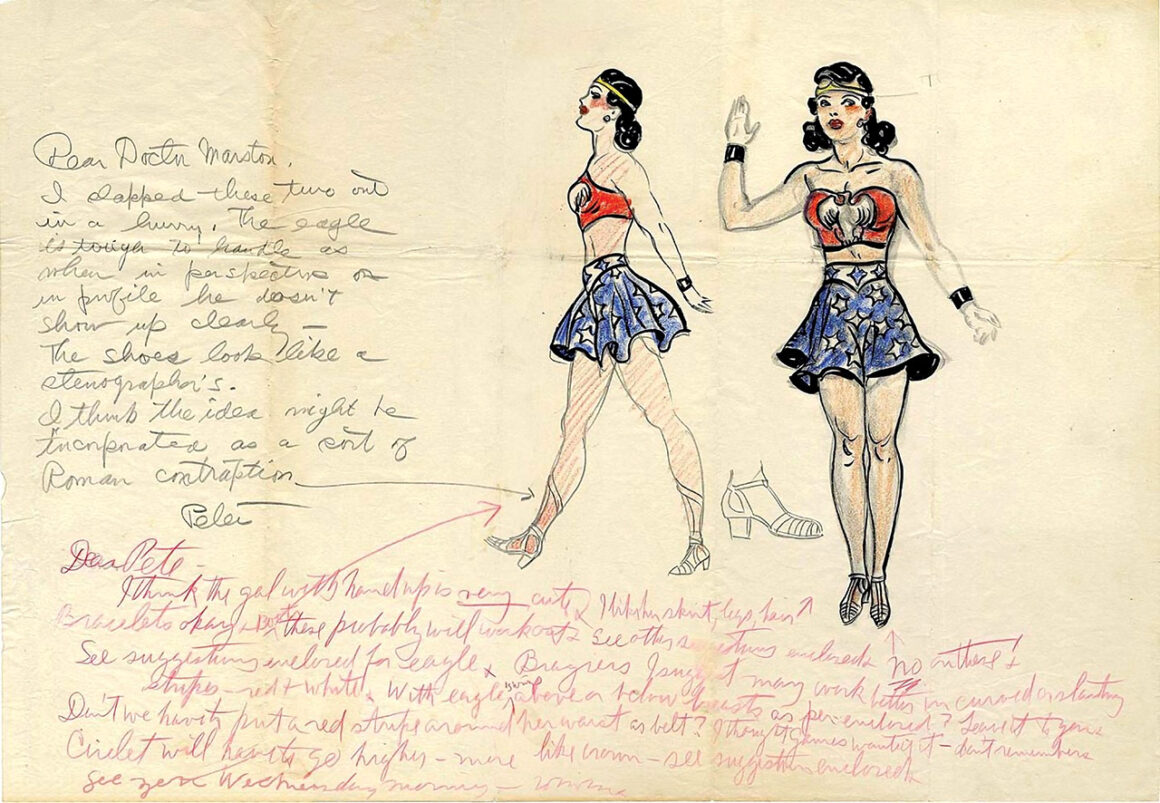 Dear Doctor Marston,
I slapped these two out
in a hurry. The eagle
is tough to handle as
when in perspective or
in profile he doesn't
show up clearly —
The shoes look like a
stenographer's.
I think the idea might be
incorporated as a sort of
Roman contraption
Peter
Dear Pete —
I think the gal with hand up is very cute. I like her skirt, legs, hair.
Bracelets okay + boots. These probably will work out. See other suggestions enclosed.
No on these!
See suggestions enclosed for eagle. Bragiers I suggest may work better in curved or slanting
stripes — red + white. With eagle's wings above or below breasts as per enclosed? Leave it to you.
Don't we have to put a red stripe around her waist as belt? I thought Gaines wanted it — don't remember.
Circlet will have to go higher — more like crown — see suggestions enclosed.
See you Wednesday morning —